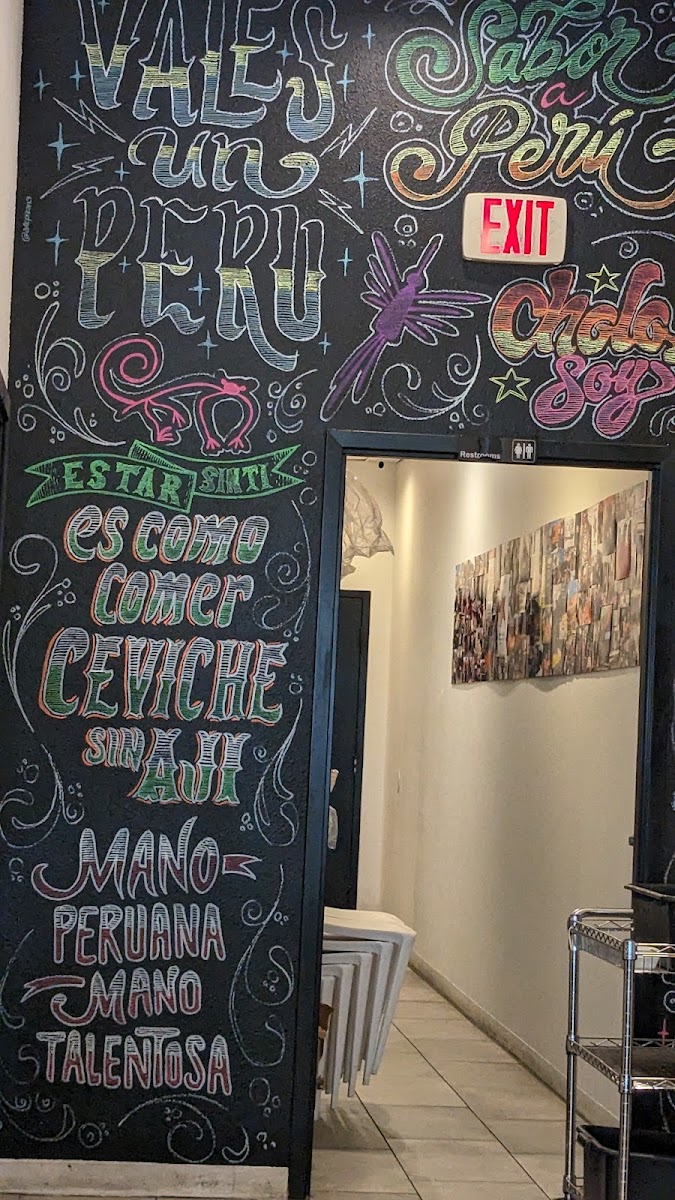 VALES
un
PERU
Sabor
a
Perú
EXIT
Cholo
Soy
Restrooms
ESTAR SINTI
es como
comer
CEVICHE
SIN AJI
MANO
PERUANA
MANO
TALENTOSA